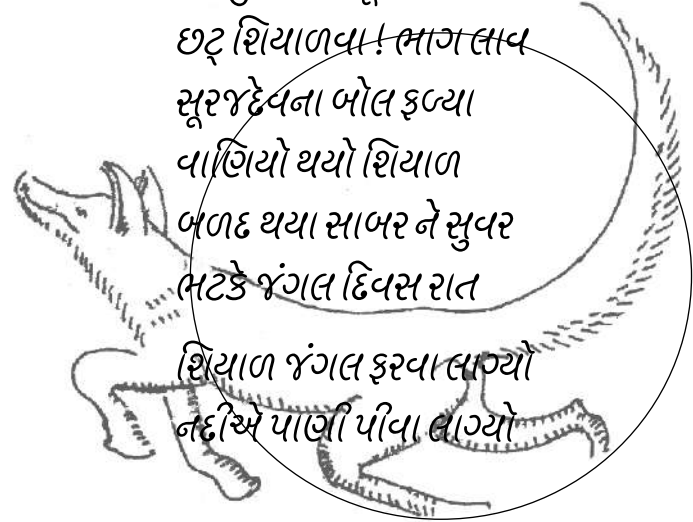 છટ્ શિયાળવા ! ભાગ લાવ
સૂરજદેવના બોલ ફળ્યા
વાણિયો થયો શિયાળ
બળદ થયા સાબર ને સુવર
ભટકે જંગલ દિવસ રાત
શિયાળ જંગલ ફરવા લાગ્યો
નદીએ પાણી પીવા લાગ્યો